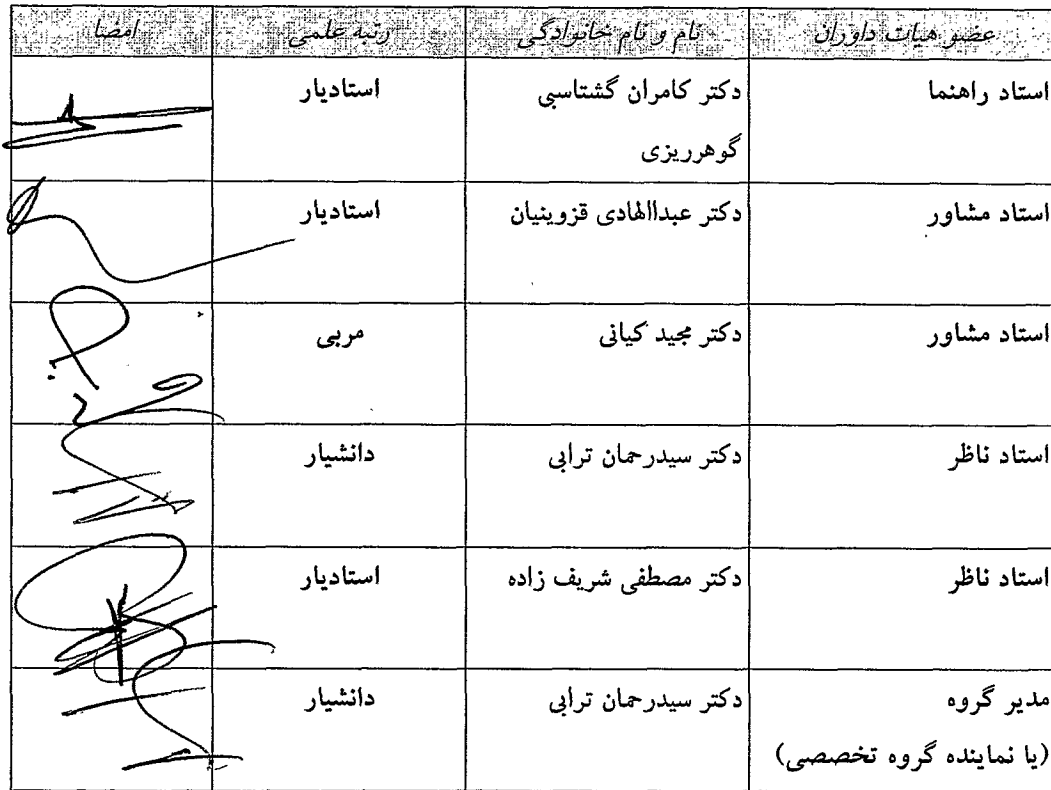 عضو هیات داوران نام و نام خانوادگی رتبه علمی امضا
استاد راهنما دکتر کامران گشتاسبی استادیار
گوهرریزی
استاد مشاور دکتر عبداالهادی قزوینیان استادیار
استاد مشاور دکتر مجید کیانی مربی
استاد ناظر دکتر سیدرحمان ترابی دانشیار
استاد ناظر دکتر مصطفی شریف زاده استادیار
مدیر گروه دکتر سیدرحمان ترابی دانشیار
(یا نماینده گروه تخصصی)